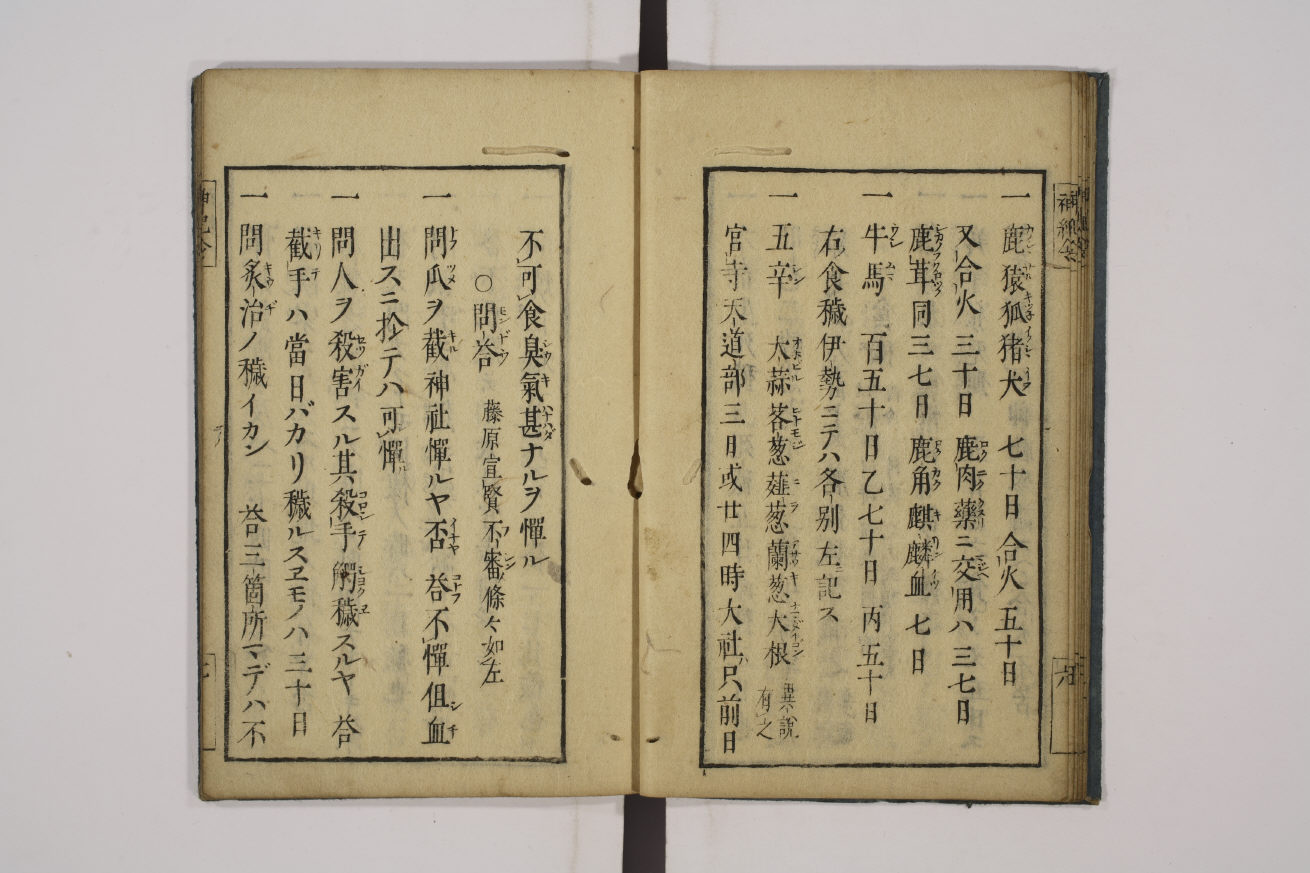 一 鹿猿狐猪犬 七十日合火 五十日
又合火 三十日 鹿肉藥ニ交用ハ三七日
鹿茸同三七日 鹿角麒麟血 七日
一 牛馬 百五十日乙七十日 丙五十日
右食穢伊勢ニテハ各別左ニ記ス
一 五辛 大蒜茖葱薤葱蘭葱大根 異說有之
官寺天道部三日或廿四時大社ハ只前日
不可食臭氣甚ナルヲ憚ル
○問答 藤原宣賢不審條々如左
一 問爪ヲ截神社憚ルヤ否 荅不憚但血
出スニ於テハ可憚
一 問人ヲ殺害スル其殺手觸穢スルヤ 荅
截手ハ當日バカリ穢ルスヱモノハ三十日
一 問炙治ノ穢イカン 荅三箇所マデハ不